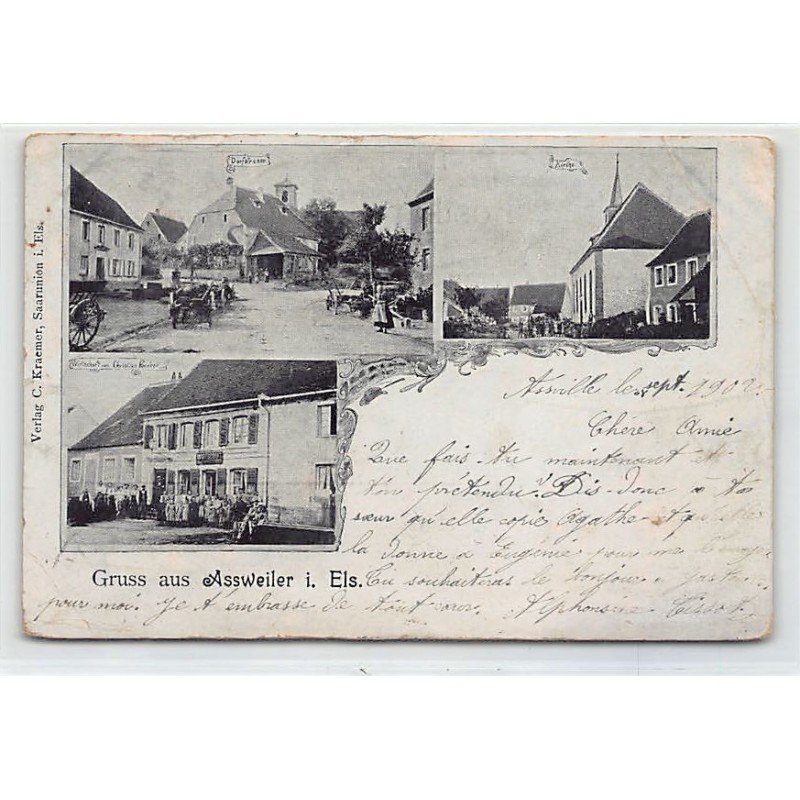 Verlag C. Kraemer, Saarunion i. Els.
Dorfstrasse
Kirche
Wirtschaft von Christian
Assville le sept. 1902.
Chère Amie
Que fais-tu maintenant et
ton prétendu? Dis-donc à ta
sœur qu'elle copie Agathe et qu'elle
la donne à Eugénie pour me
Gruss aus Assweiler i. Els.
Tu souhaiteras le bonjour à
pour moi. Je t'embrasse de tout cœur. Alphonsine